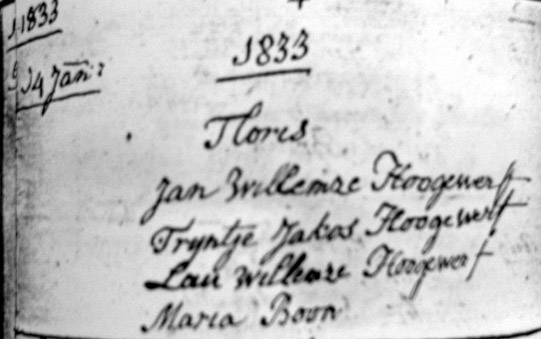 1833
1833
14 Jan:
Floris
Jan Willemze Hoogewerf
Tryntje Jakos Hoogewerf
Lau Willemze Hoogewerf
Maria Boon